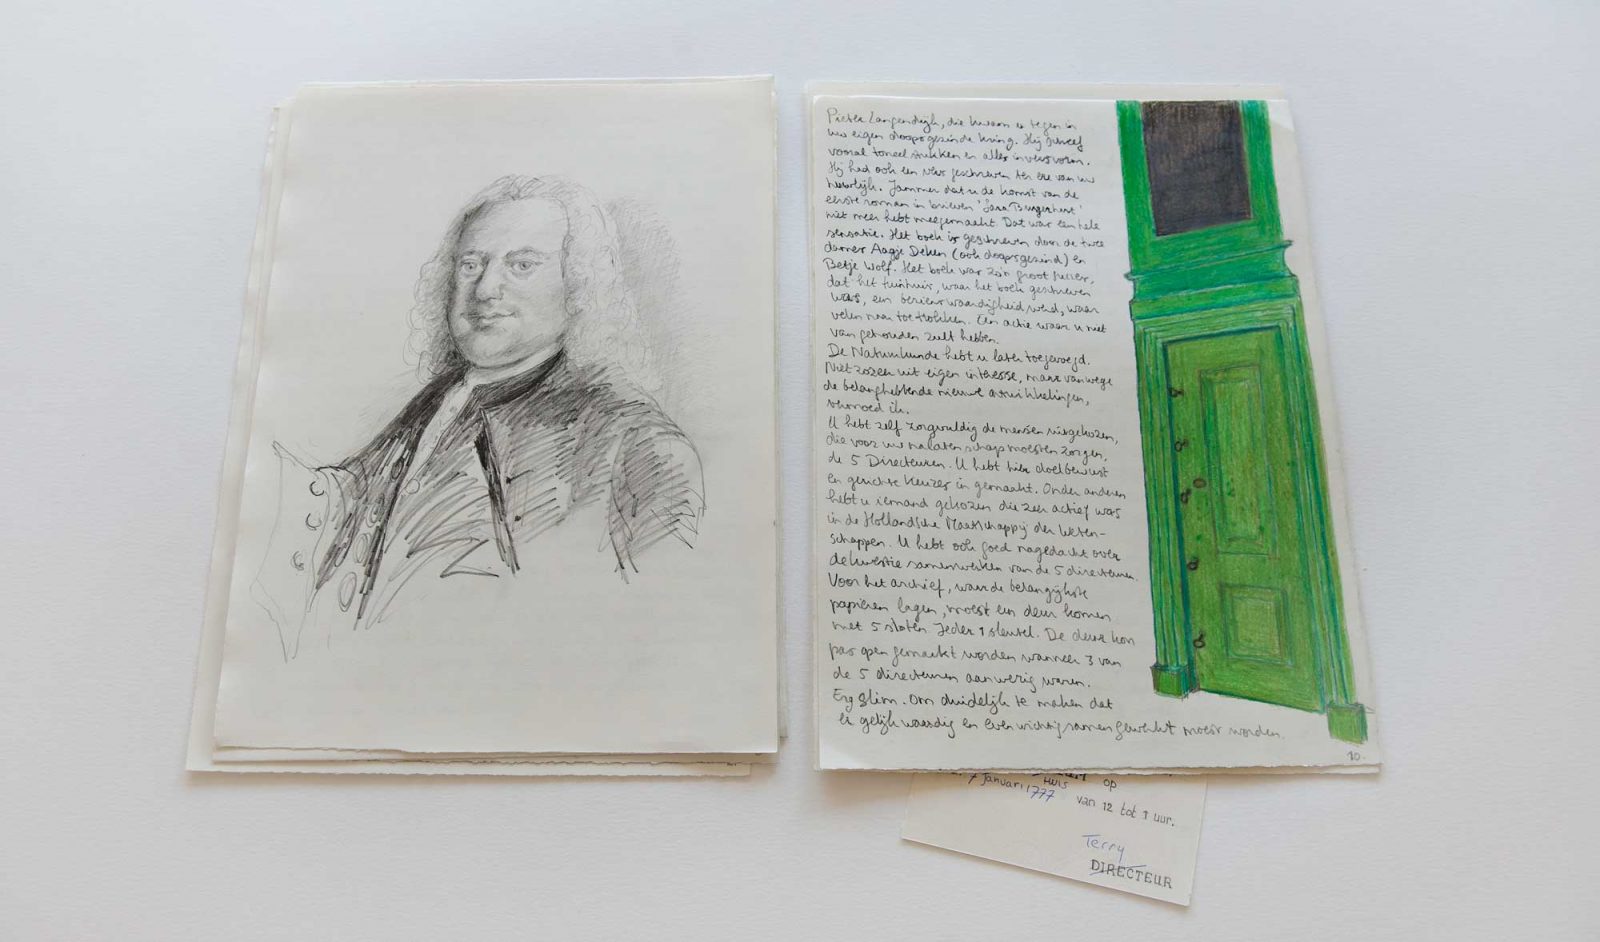 Pieter Langendijk, die kwam u tegen in
uw eigen doopsgezinde kring. Hij schreef
vooral toneelstukken en alles in versvorm.
Hij had ook een vers geschreven ter ere van uw
huwelijk. Jammer dat u de komst van de
eerste roman in brieven 'Sara Burgerhart'
niet meer hebt meegemaakt. Dat was een hele
sensatie. Het boek is geschreven door de twee
dames Aagje Deken (ook doopsgezind) en
Betje Wolf. Het boek was zo'n groot succes,
dat het tuinhuis, waar het boek geschreven
was, een bezienswaardigheid werd, waar
velen naar toe trokken. Een actie waar u niet
van gehouden zult hebben.
De Natuurkunde hebt u later toegevoegd.
Niet zozeer uit eigen interesse, maar vanwege
de belanghebbende nieuwe ontwikkelingen,
vermoed ik.
U hebt zelf zorgvuldig de mensen uitgekozen,
die voor uw nalatenschap moesten zorgen,
de 5 Directeuren. U hebt hier doelbewust
en gerichte keuzes in gemaakt. Onder anderen
hebt u iemand gekozen die zeer actief was
in de Hollandsche Maatschappij der Weten-
schappen. U hebt ook goed nagedacht over
de kwestie samenwerken van de 5 directeuren.
Voor het archief, waar de belangrijkste
papieren lagen, moest een deur komen
met 5 sloten. Ieder 1 sleutel. De deur kon
pas open gemaakt worden wanneer 3 van
de 5 directeuren aanwezig waren.
Erg slim. Om duidelijk te maken dat
er gelijkwaardig en evenwichtig samengewerkt moest worden.
10.
HUIS op
7 Januari 1777 van 12 tot 1 uur.
Terry
DIRECTEUR